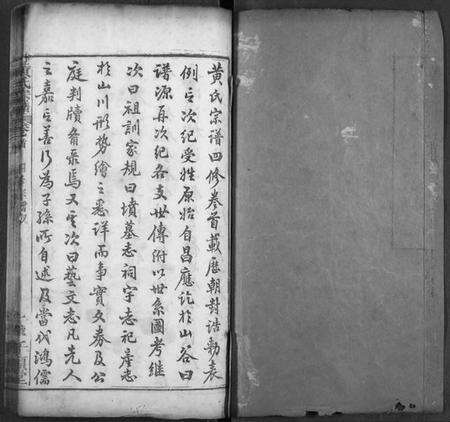 黄氏宗谱四修卷首載歷朝封誥勅表
例之次纪受姓原始自昌應訖於山谷曰
谱源再次纪各支世傳附以世系圖考继
次曰祖訓家規曰墳墓志祠宇志祀產志
於山川形勢繪之悉詳而事實文券及公
庭判牘备录焉又其次曰藝文志凡先人
之嘉言善行為子孫所自述及當代鴻儒